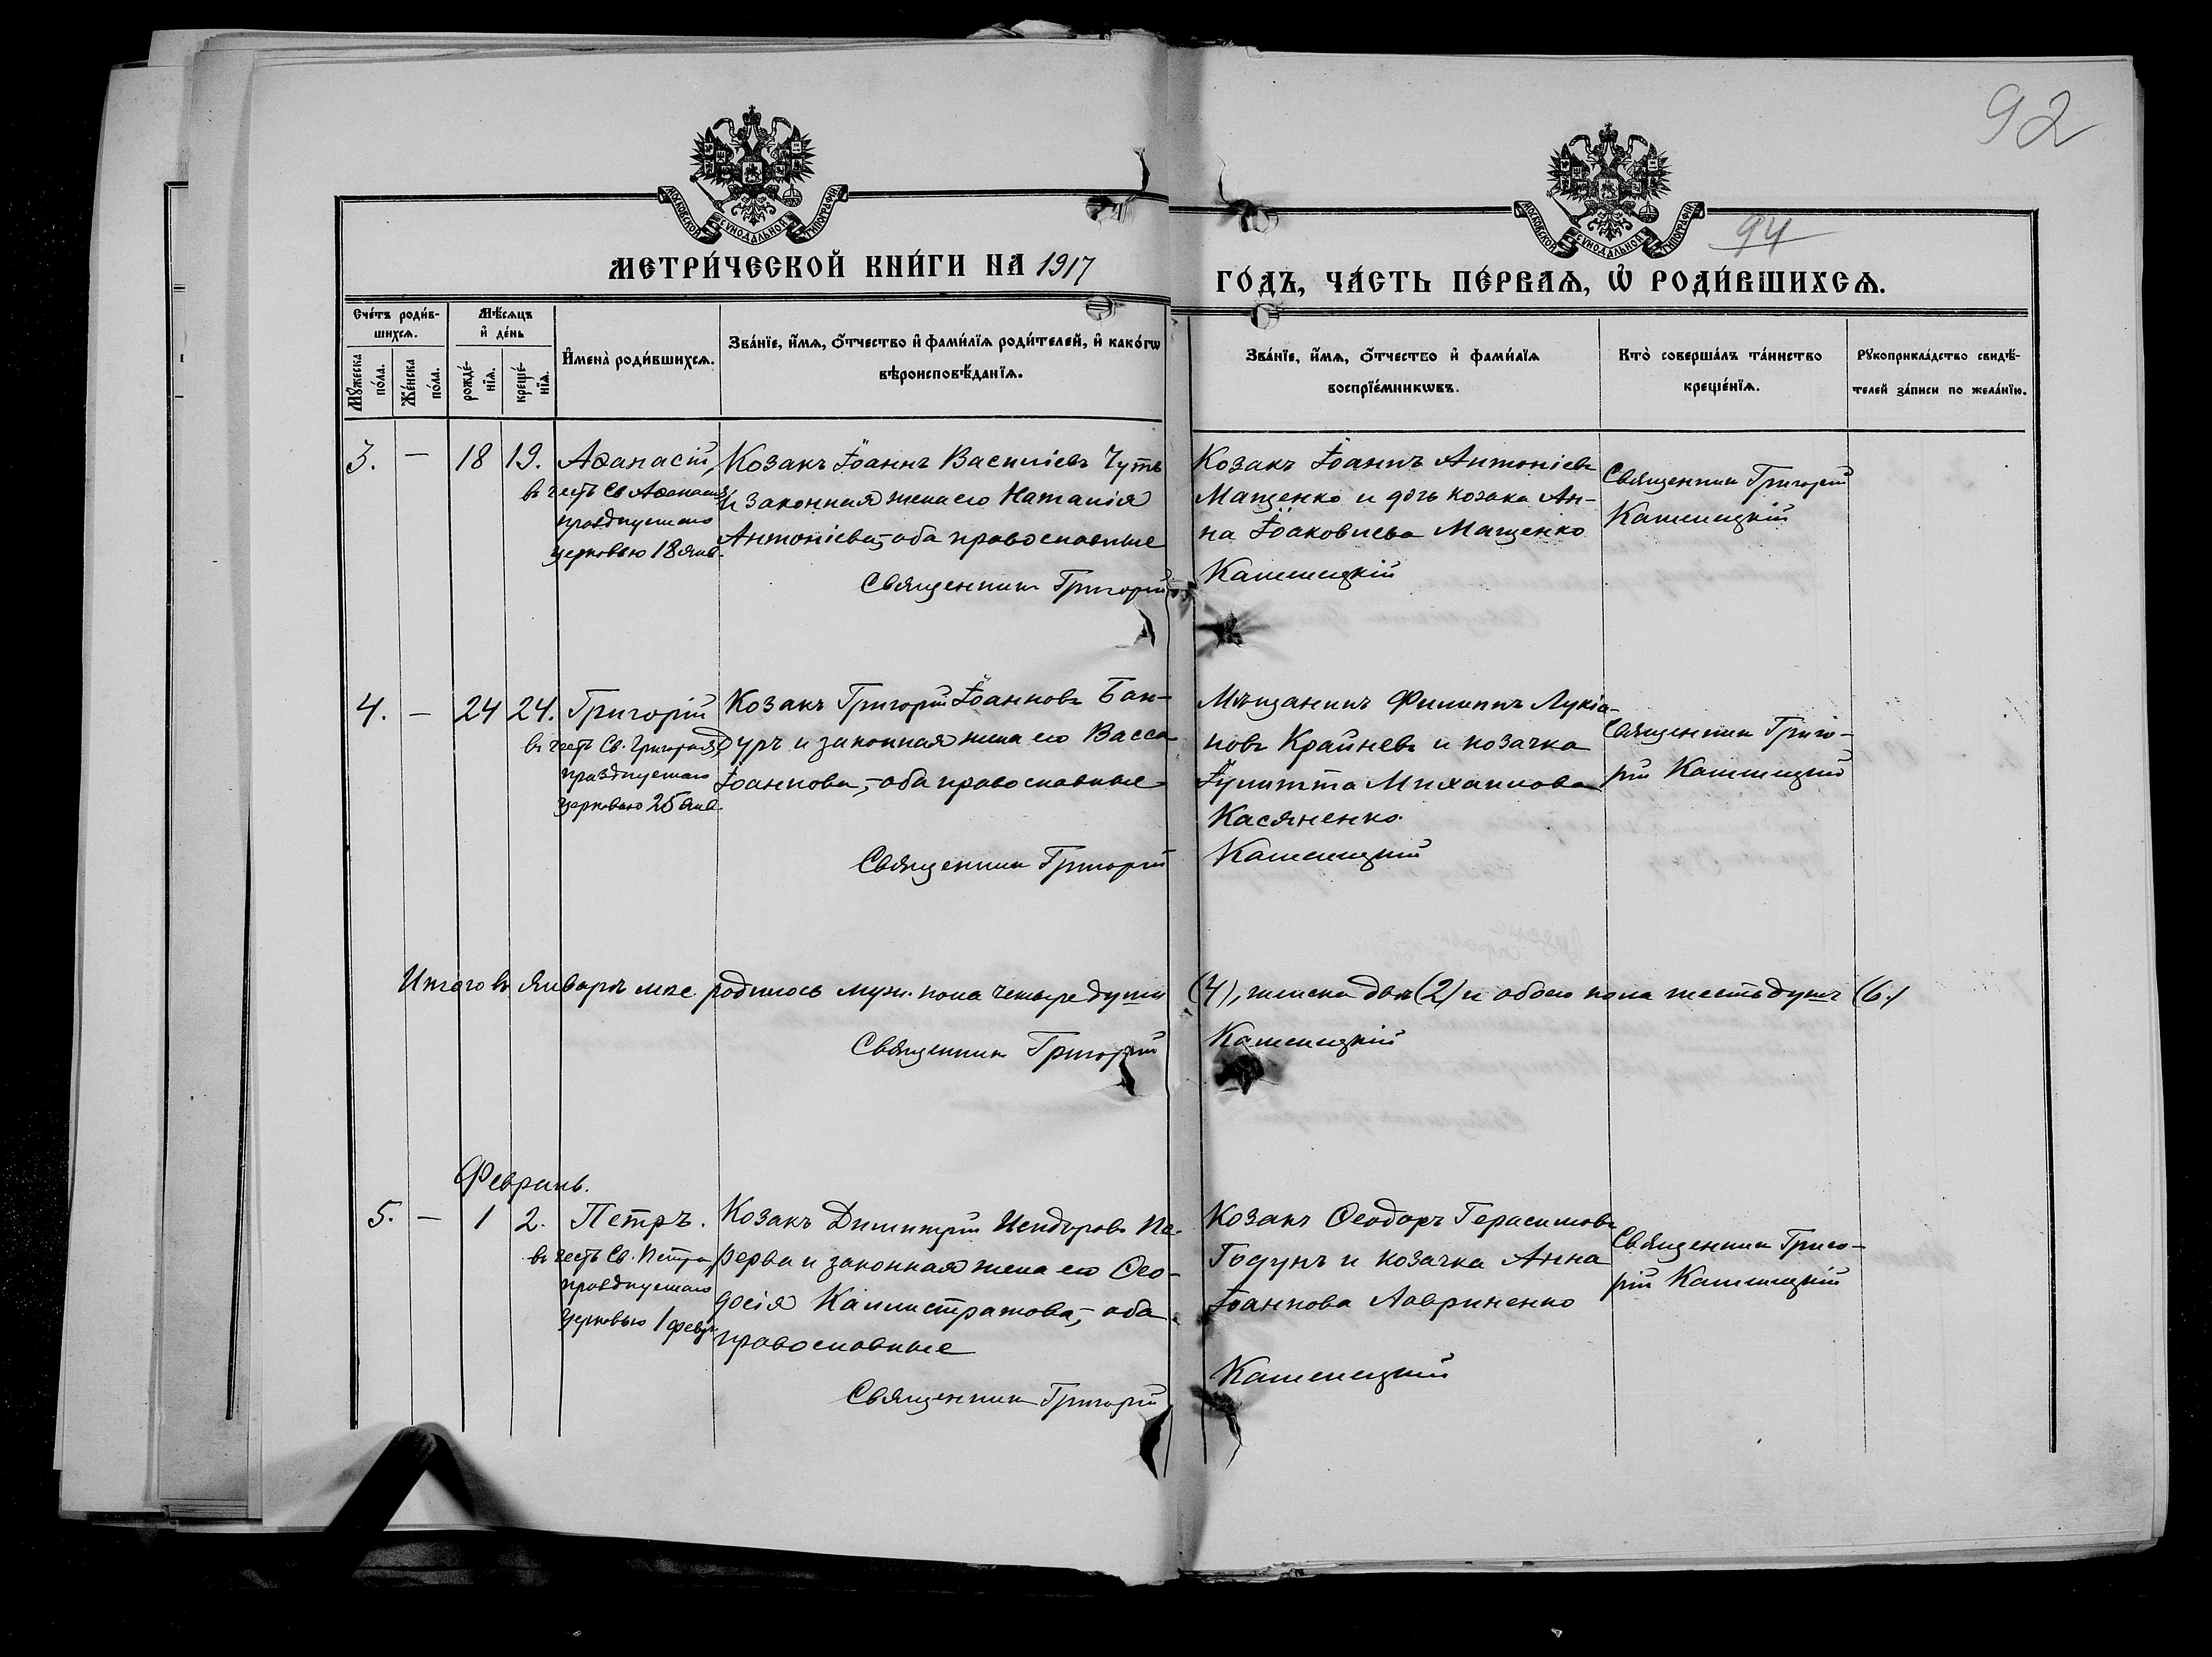 92
94
МОСКОВСКОЙ СѴНОДАЛЬНОЙ ТИПОГРАФІИ
МОСКОВСКОЙ СѴНОДАЛЬНОЙ ТИПОГРАФІИ
МЕТРИ́ЧЕСКОЙ КНИ́ГИ НА 1917
ГО́ДЪ, ЧА́СТЬ ПЕ́РВАѦ, Ѡ҆ РОДИ́ВШИХСѦ.
Сче́тъ роди́в-
шихсѧ.
Мꙋ́жеска
по́ла.
Же́нска
по́ла.
Мѣ́сѧцъ
и҆ де́нь
рожде́-
нїѧ.
креще́-
нїѧ.
И҆мена̀ роди́вшихсѧ.
Зва́нїе, и҆́мѧ, ѻ҆́тчество и҆ фами́лїѧ роди́телей, и҆ како́гѡ
вѣроисповѣ́данїѧ.
Зва́нїе, и҆́мѧ, ѻ҆́тчество и҆ фами́лїѧ
воспрїе́мникѡвъ.
Кто̀ соверша́лъ та́инство
креще́нїѧ.
Рꙋкоприкла́дство свидѣ́-
телей за́писи по жела́нїю.
3. — 18 19. Аѳанасій,
въ честь Св Аѳанасія
празднуемаго
церковью 18 янв.
Козакъ Іоаннъ Василіевъ Чуть
и законная жена его Наталія
Антоніева, оба православные
Священникъ Григорій Каменицкій
Козакъ Іоаннъ Антоніевъ
Мащенко и дочь козака Ан-
на Іаковлева Мащенко
Священник Григорій
Каменицкій
4. — 24 24. Григорій
въ честь Св. Григорія,
празднуемаго
церковью 25 янв.
Козакъ Григорій Іоанновъ Бан-
дуръ и законная жена его Васса
Іоаннова, - оба православные
Священник Григорій Каменицкій
Мѣщанинъ Филиппъ Лукіа-
новъ Крайневъ и козачка
Іулитта Михаилова
Касяненко.
Священник Григо-
рій Каменицкій
Итого въ Январѣ мѣс. родилось муж. пола четыре души (4), женска двѣ (2) и обоего пола шесть душъ (6.)
Священник Григорій Каменицкій
Февраль.
5. — 1 2. Петръ.
въ честь Св. Петра,
празднуемаго
церковью 1 февр.
Козакъ Димитрій Исидоровъ Пе-
рерва и законная жена его Ѳео-
досія Каллистратова, - оба
православные
Священник Григорій Каменицкій
Козакъ Ѳеодоръ Герасимовъ
Годунъ и козачка Анна
Іоаннова Лавриненко
Священник Григо-
рій Каменицкій